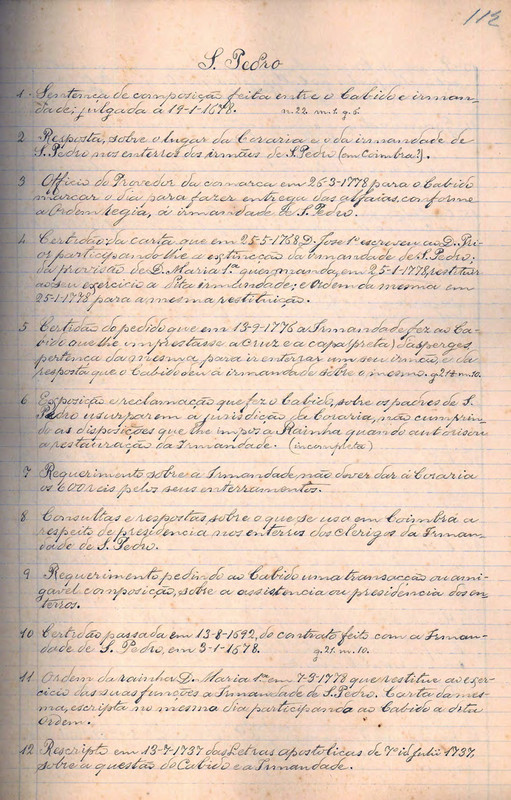 112
S. Pedro
1 Sentença de composição feita entre o Cabido e irman-
dade; julgada a 19-1-1678. n. 22. m. 1. g. 5.
2 Resposta, sobre o lugar da Coraria e o da irmandade de
S. Pedro nos enterros dos irmãos de S. Pedro (em Coimbra?).
3 Officio do Provedor da comarca em 25-3-1778 para o Cabido
marcar o dia para fazer entrega das alfaias, conforme
a Ordem regia, á irmandade de S. Pedro.
4 Certidão: da carta que em 25-5-1768, D. Jose 1º escreveu ao D. Pri-
or participando-lhe a extincção da irmandade de S. Pedro;
da provisão de D. Maria 1ª que manda, em 25-1-1778, restituir
ao seu exercicio a dita irmandade; e ordem da mesma em
25-1-1778 para a mesma restituição.
5 Certidão do pedido que em 13-9-1776 a Irmandade fez ao Ca-
bido que lhe imprestasse a Cruz e a capa (preta) d'asperges,
pertença da mesma, para ir enterrar um seu irmão, e da
resposta que o Cabido deu á irmandade sobre o mesmo. g. 21. m. 10.
6 Exposição e reclamação que fez o Cabido, sobre os padres de S.
Pedro usurparem a jurisdição da Coraria, não cumprin-
do as disposições que lhe impoz a Rainha quando autorisou
a restauração da Irmandade. (incompleta)
7 Requerimento sobre a Irmandade não dever dar á Coraria
os 600 reis pelos seus enterramentos.
8 Consultas e respostas sobre o que se usa em Coimbra a
respeito de presidencia nos enterros dos clerigos da Irman-
dade de S. Pedro.
9 Requerimento pedindo ao Cabido uma transacção ou ami-
gavel composição, sobre a assistencia ou presidencia dos en-
terros.
10 Certidão passada em 13-8-1692, do contrato feito com a Irman-
dade de S. Pedro, em 3-1-1678. g. 21. m. 10.
11 Ordem da rainha D. Maria 1ª em 7-3-1778 que restitue ao exer-
cicio das suas funções a Irmandade de S. Pedro. Carta da mes-
ma, escripta no mesmo dia participando ao Cabido a dita
Ordem.
12 Rescripto em 13-7-1737 das Letras apostolicas de 7º id. Julii 1737,
sobre a questão do Cabido e a Irmandade.